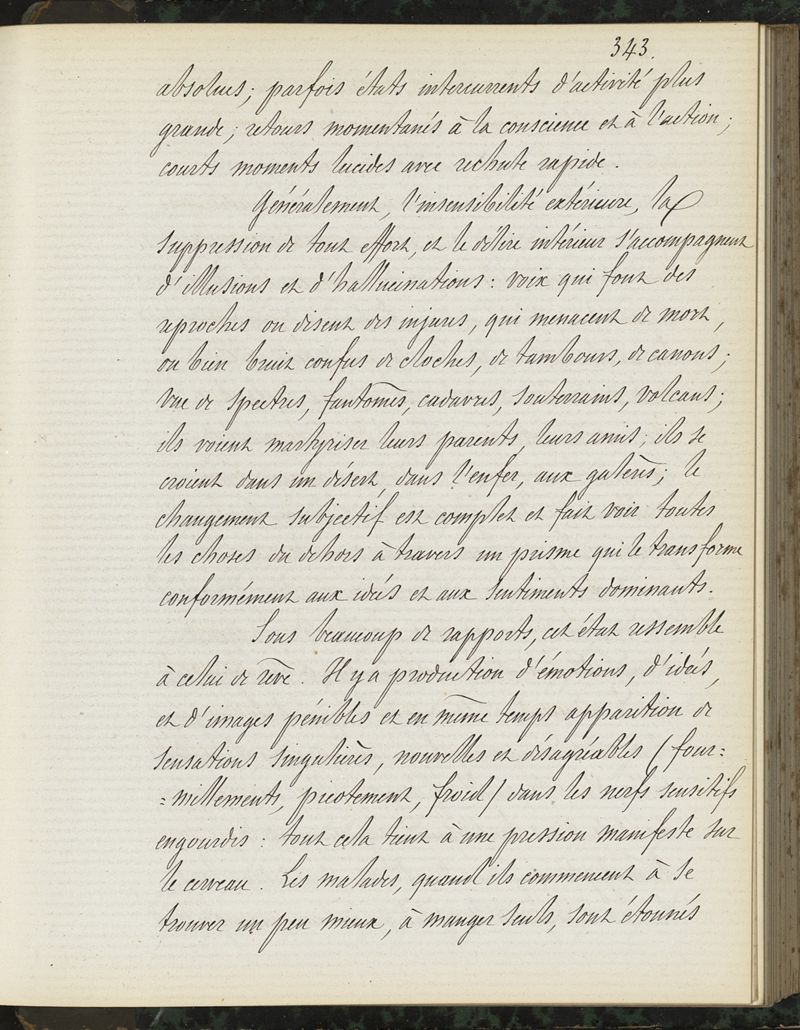 343.
absolues; parfois états intercurrents d'activité plus
grande; retours momentanés à la conscience et à l'action;
courts moments lucides avec rechute rapide.
Généralement, l'insensibilité extérieure, la
suppression de tout effort, et le délire intérieur s'accompagnent
d'illusions et d'hallucinations: voix qui font des
reproches ou disent des injures, qui menacent de mort,
ou bien bruit confus de cloches, de tambours, de canons;
vue de spectres, fantômes, cadavres, souterrains, volcans;
ils voient martyriser leurs parents, leurs amis; ils se
croient dans un désert, dans l'enfer, aux galères; le
changement subjectif est complet et fait voir toutes
les choses du dehors à travers un prisme qui le transforme
conformément aux idées et aux sentiments dominants.
Sous beaucoup de rapports, cet état ressemble
à celui de rêve. Il y a production d'émotions, d'idées,
et d'images pénibles et en même temps apparition de
sensations singulières, nouvelles et désagréables (four=
=millements, picotement, froid) dans les nerfs sensitifs
engourdis: tout cela tient à une pression manifeste sur
le cerveau. Les malades, quand ils commencent à se
trouver un peu mieux, à manger seuls, sont étonnés